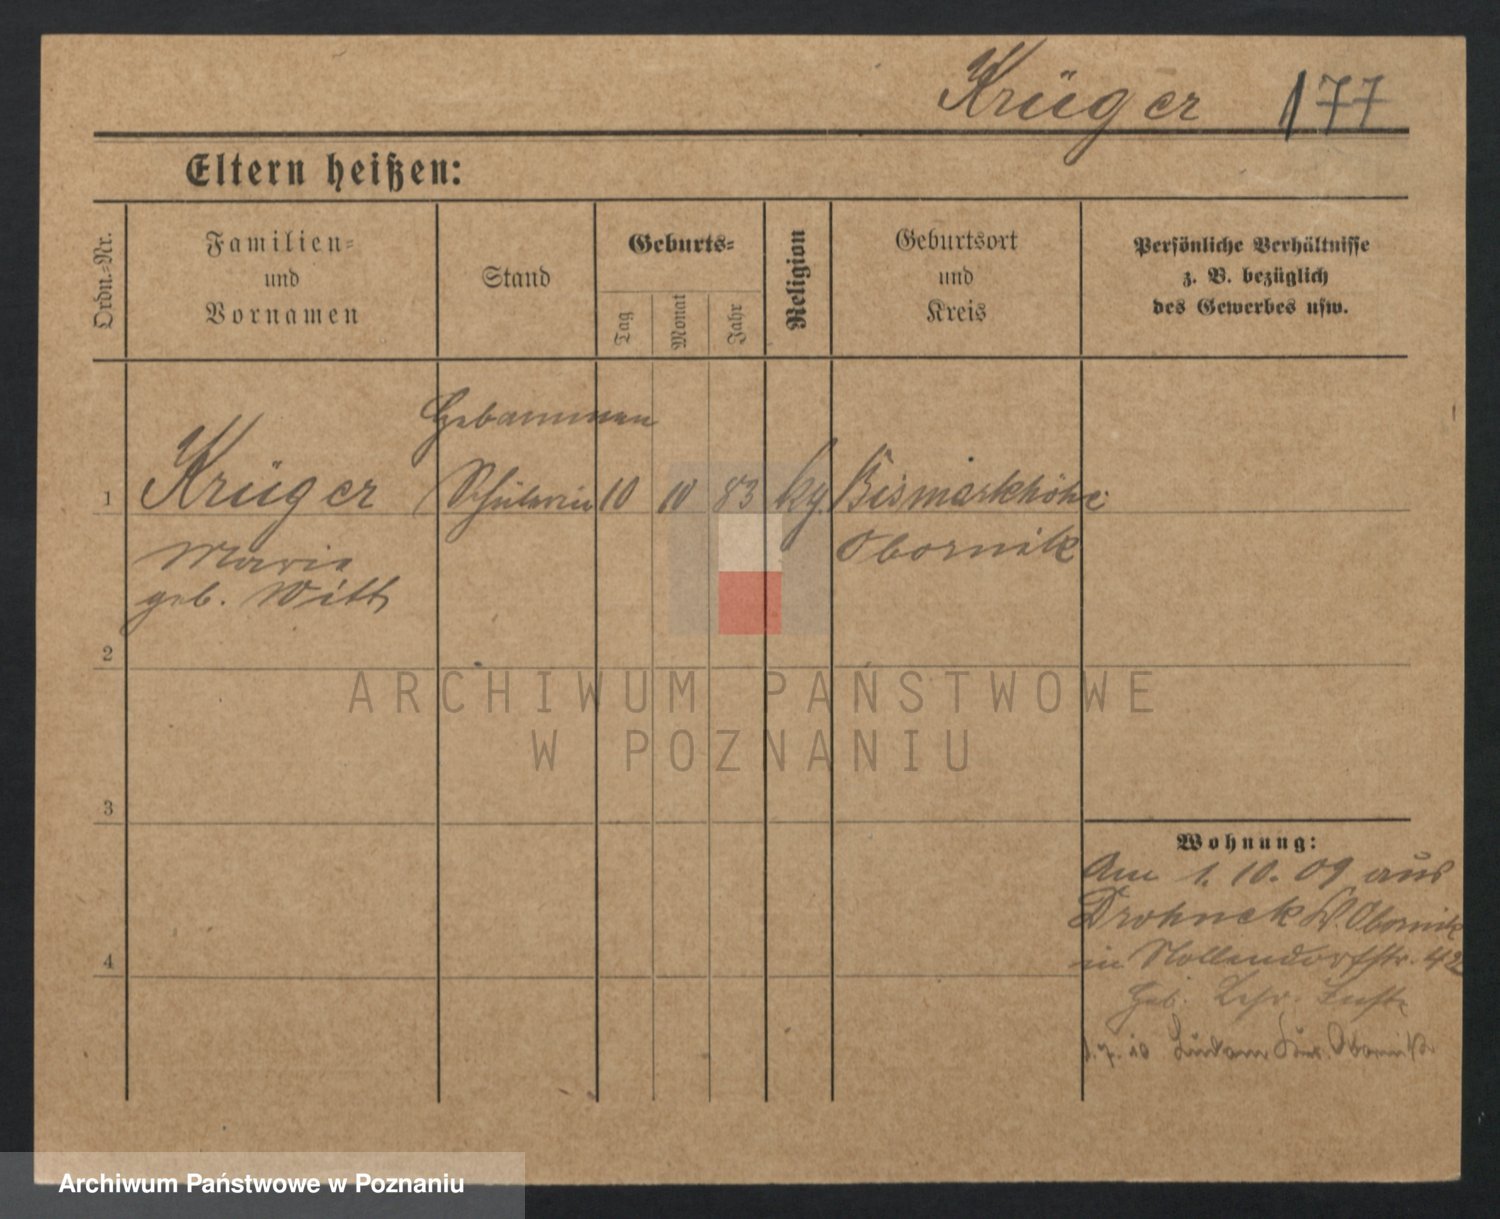 Krüger 177
Eltern heißen:
Ordn.-Nr.
Familien-
und
Vornamen
Stand
Geburts-
Tag
Monat
Jahr
Religion
Geburtsort
und
Kreis
Persönliche Verhältnisse
z. B. bezüglich
des Gewerbes usw.
Hebammen
1 Krüger Schülerin 10 10 83 Bismarkhöhe
Obornik
Marie
geb. Witt
2
3
4
Wohnung:
Am 1. 10. 09 aus
K. Obornik
in Nollendorfstr. 42
Heb. Lehr.
1. 7. 10 Obornik
ARCHIWUM PAŃSTWOWE
W POZNANIU
Archiwum Państwowe w Poznaniu